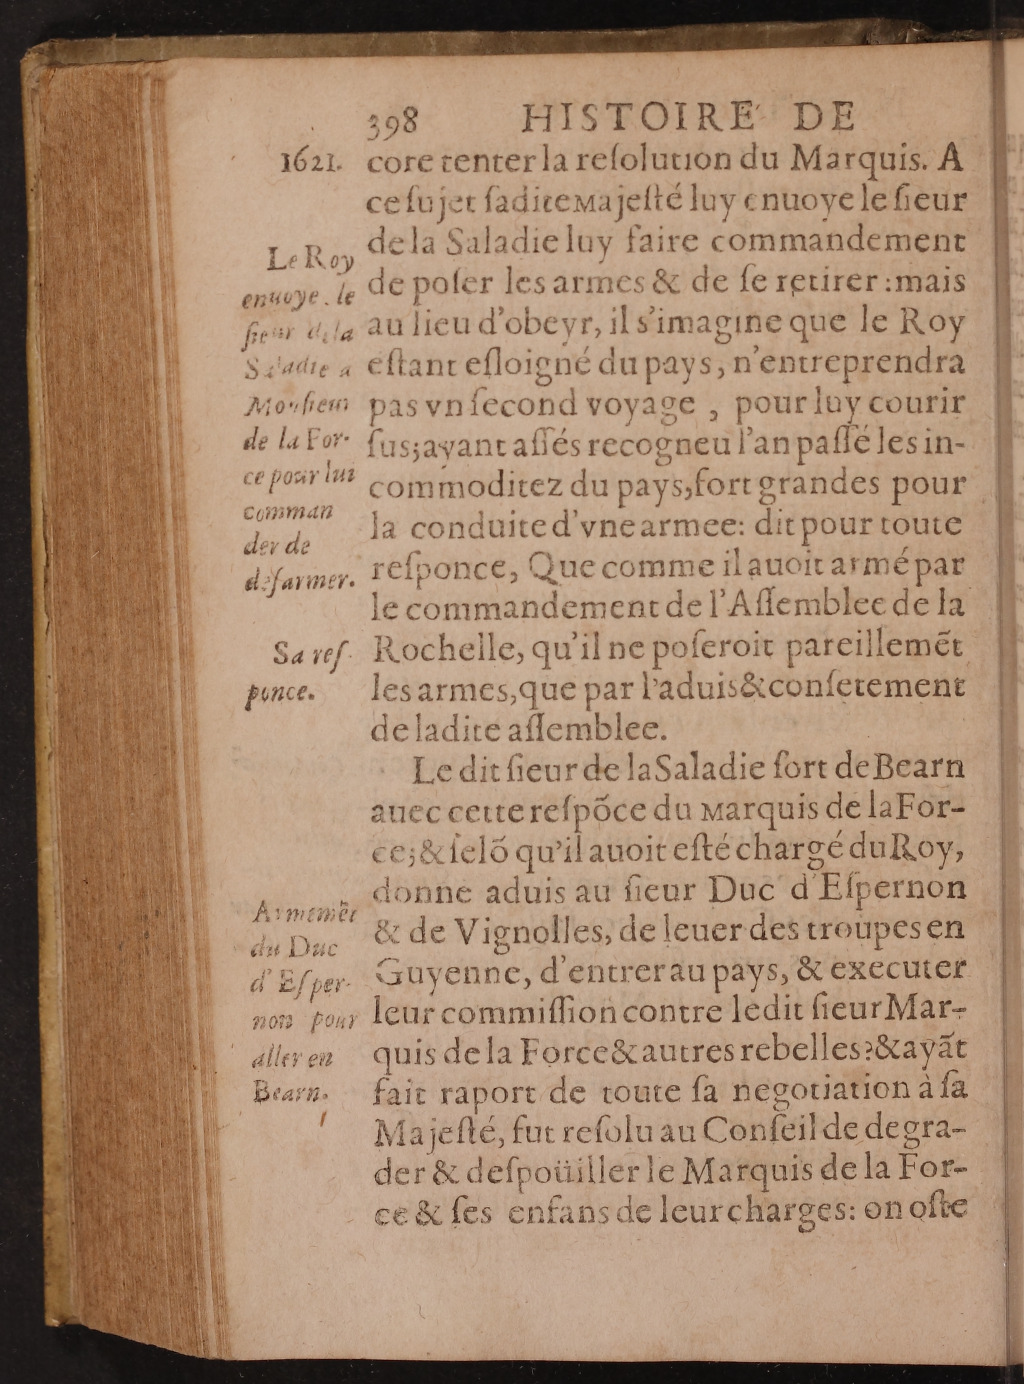 398 HISTOIRE DE
1621.
core tenter la reſolution du Marquis. A
ce ſujet ſadite Majeſté luy enuoye le ſieur
de la Saladie luy faire commandement
de poſer les armes & de ſe retirer : mais
au lieu d'obeyr, il s'imagine que le Roy
eſtant eſloigné du pays, n'entreprendra
pas vn ſecond voyage , pour luy courir
ſus; ayant aſſés recogneu l'an paſſé les in-
commoditez du pays, fort grandes pour
la conduite d'vne armee: dit pour toute
reſponce, Que comme il auoit armé par
le commandement de l'Aſſemblee de la
Rochelle, qu'il ne poſeroit pareillemẽt
les armes, que par l'aduis & conſetement
de ladite aſſemblee.
Le dit ſieur de la Saladie ſort de Bearn
auec cette reſpõce du Marquis de la For-
ce; & ſelõ qu'il auoit eſté chargé du Roy,
donne aduis au ſieur Duc d'Eſpernon
& de Vignolles, de leuer des troupes en
Guyenne, d'entrer au pays, & executer
leur commiſſion contre ledit ſieur Mar-
quis de la Force & autres rebelles: & ayãt
fait raport de toute ſa negotiation à ſa
Majeſté, fut reſolu au Conſeil de degra-
der & deſpoüiller le Marquis de la For-
ce & ſes enfans de leur charges: on oſte
Le Roy
enuoye le
ſieur de la
Saladie a
Monſieur
de la For-
ce pour lui
comman
der de
deſarmer.
Sa reſ-
ponce.
Armemẽt
du Duc
d'Eſper-
non pour
aller en
Bearn.